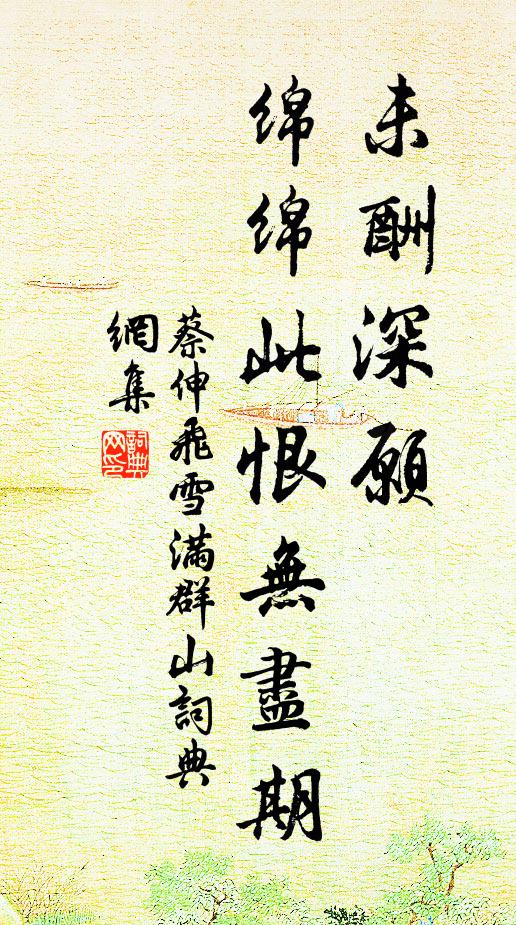 未酬深愿
绵绵此恨無盡期
蔡伸飛雪滿群山詞典
網集
詞典
网印